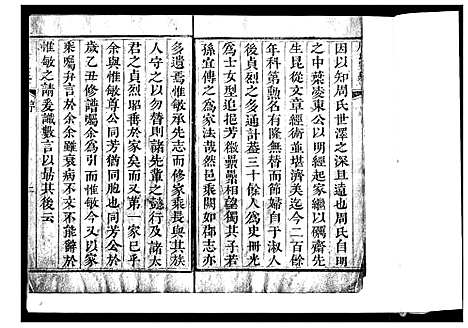 因以知周氏世澤之深且遠也周氏自明
之中葉凌東公以明經起家繼以礪齋先
生昆從文章經術並堪濟美迄今二百餘
年科第勲名有隆無替而節婦自于淑人
後貞烈之多通計葢三十餘人爲史冊光
爲士女型追抱芳徽纍纍相望獨其子若
孫宣傅之爲家法哉然而邑乘闕如郡志亦
多遺焉惟敏承先志而修家乘長與其族
人守之以勿替則諸先輩之懿行及諸太
君之貞烈耶垂於家矣而又第一家已乎
余與惟敏尊公同芳猶同胞也而惟敏於
歲乙丑修譜囑余爲引而惟敏今又以家
乘囑弁言於余余雖衰病不文不能辭於
惟敏之請爰識數言以最其後云
序